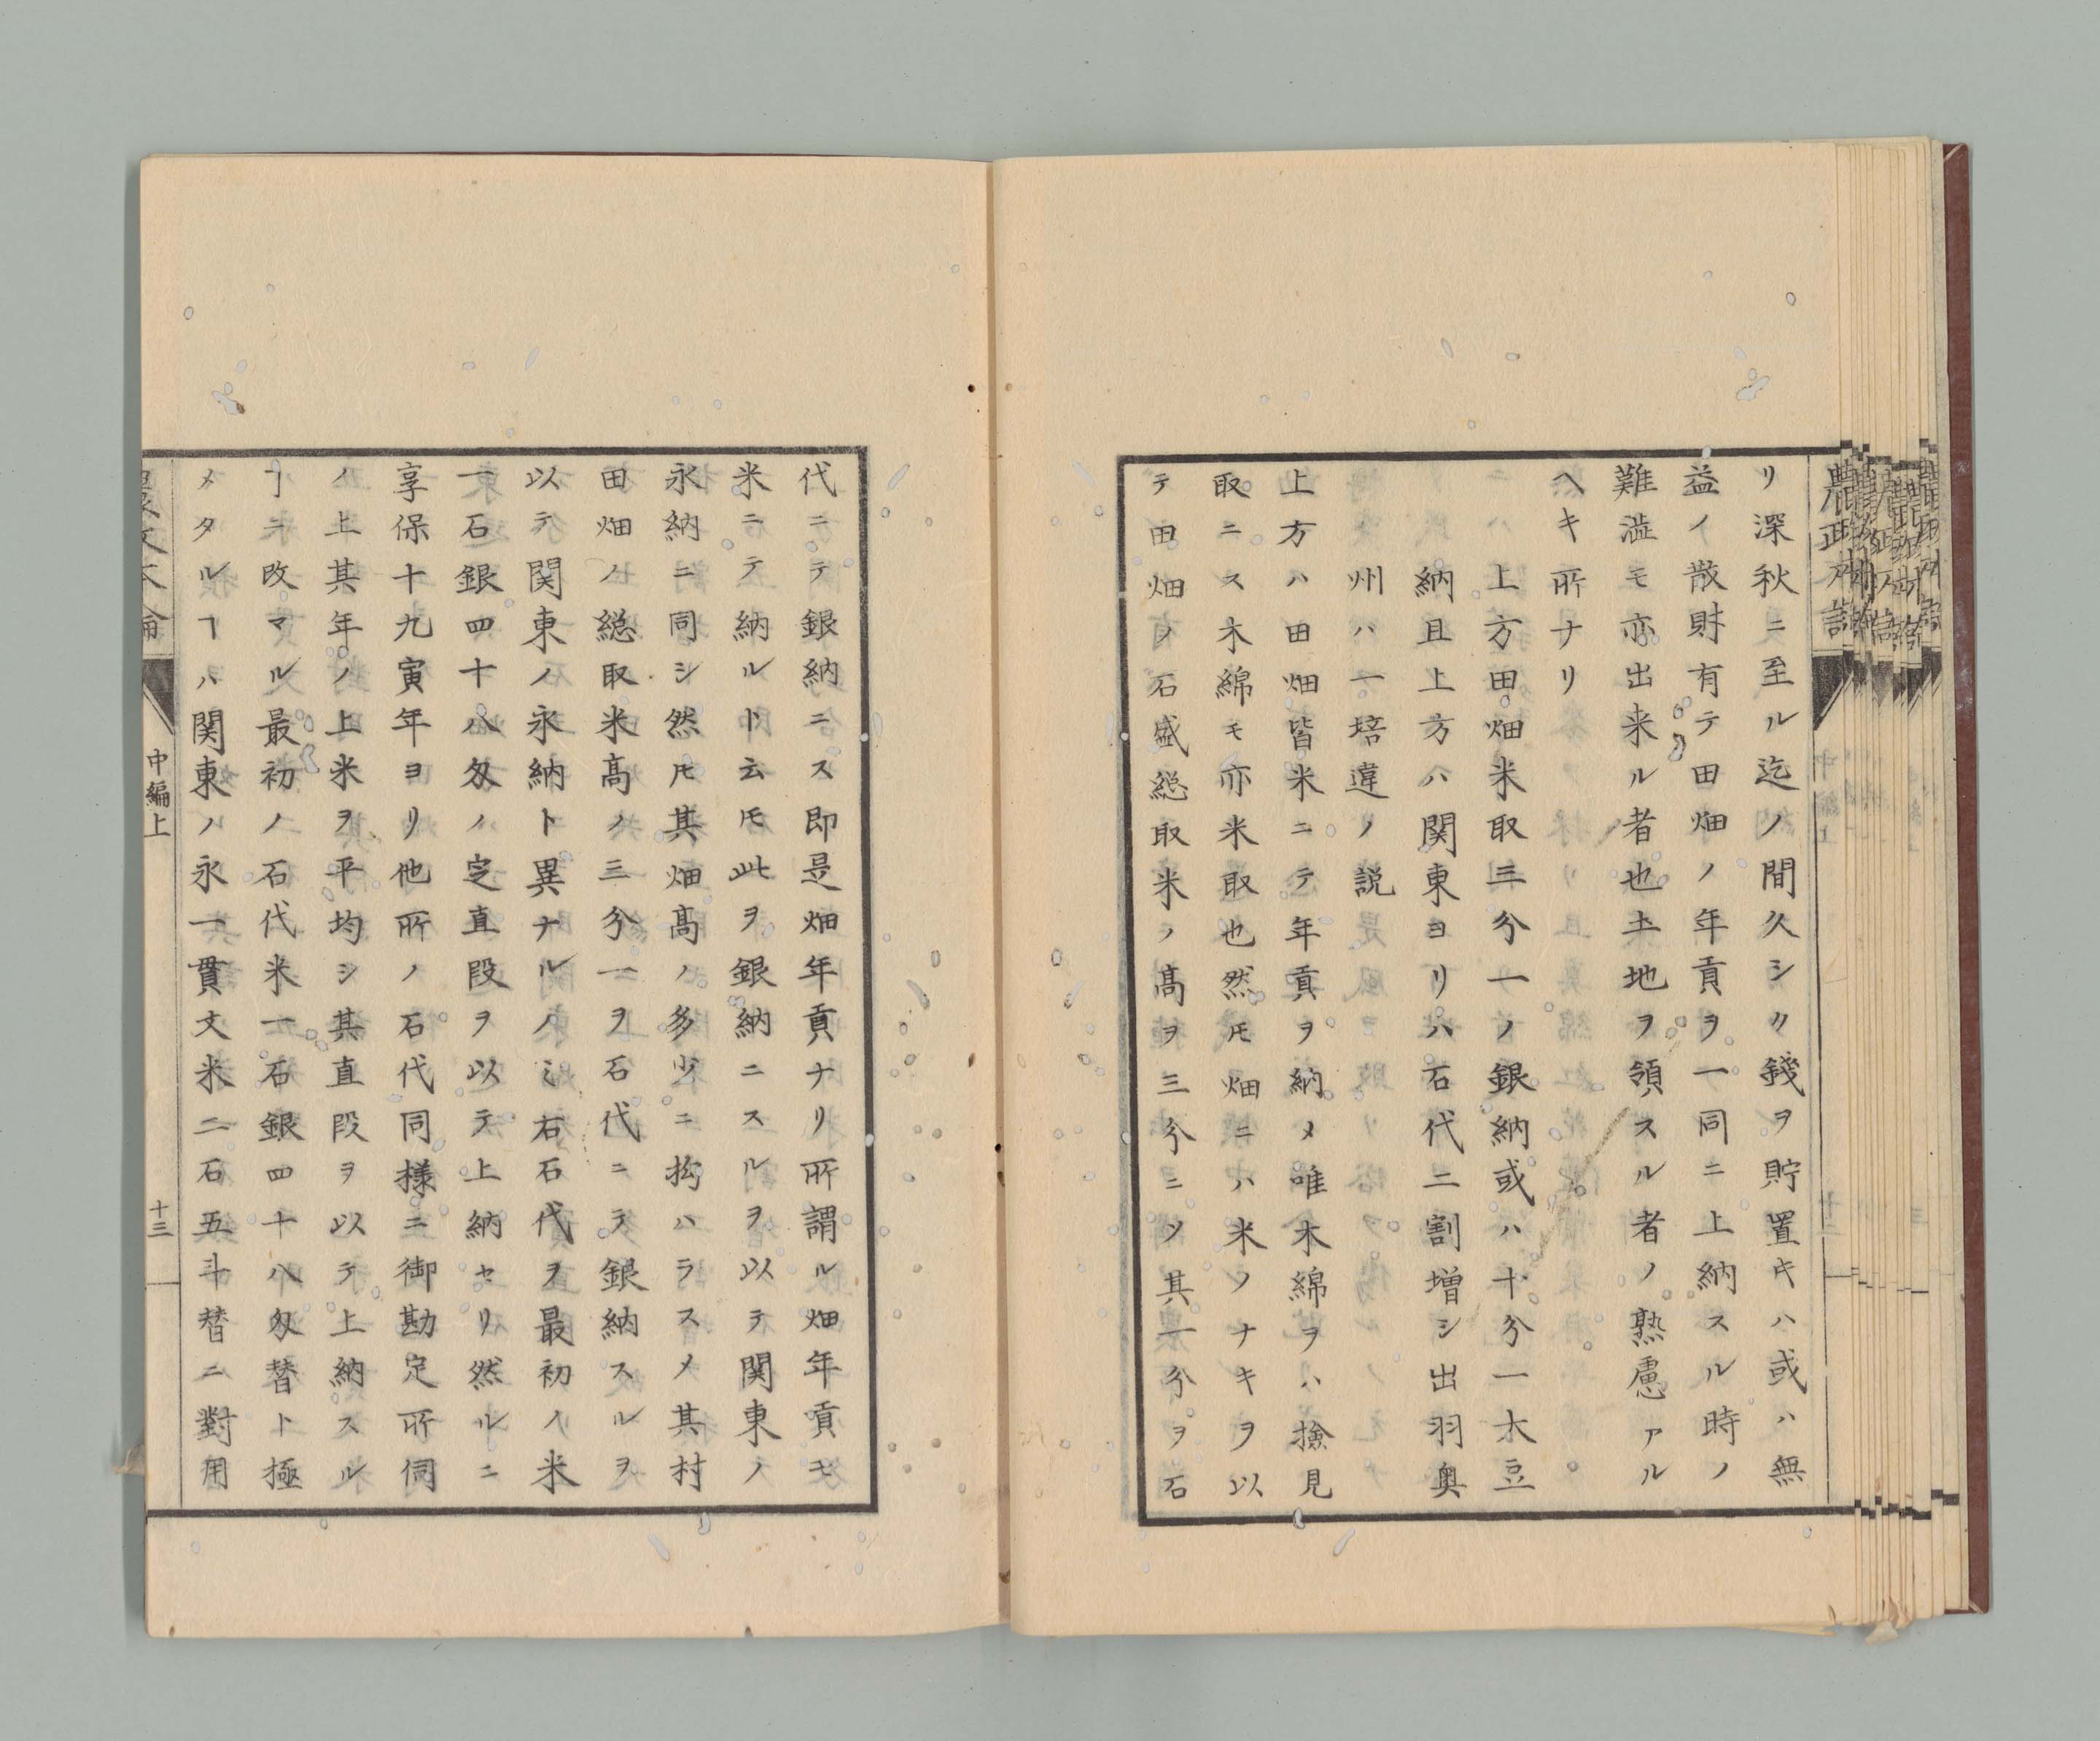 リ深秋ニ至ル迄ノ間久シク錢ヲ貯置キハ或ハ無
益ノ散財有テ田畑ノ年貢ヲ一同ニ上納スル時ノ
難澁モ亦出来ル者也土地ヲ領スル者ノ熟慮アル
ヘキ所ナリ
上方田畑米取三分一ノ銀納或ハ十分一大豆
納且上方ハ関東ヨリハ石代二割増シ出羽奥
州ハ一培違ノ説
上方ハ田畑皆米ニテ年貢ヲ納メ唯木綿ヲハ撿見
取ニス木綿モ亦米取也然𪜈畑ニハ米ノナキヲ以
テ田畑ノ石盛総取米ノ髙ヲ三分ニソ其一分ヲ石
代ニテ銀納ニス即是畑年貢ナリ所謂ル畑年貢モ
米ニテ納ルト云𪜈此ヲ銀納ニスルヲ以テ関東ノ
永納ニ同シ然𪜈其畑髙ノ多少ニ拘ハラスメ其村
田畑ノ総取米髙ノ三分一ヲ石代ニテ銀納スルヲ
以テ関東ノ永納ト異ナルノミ右石代ヲ最初ノ米
一石銀四十八匁ノ定直段ヲ以テ上納セリ然ルニ
享保十九寅年ヨリ他所ノ石代同様ニ御勘定所伺
ノ上其年ノ上米ヲ平均シ其直段ヲ以テ上納スル
ヿニ改マル最初ノ石代米一石銀四十八匁替ト極
メタルヿハ関東ノ永一貫文米二石五斗替ニ對用
中編上
十三